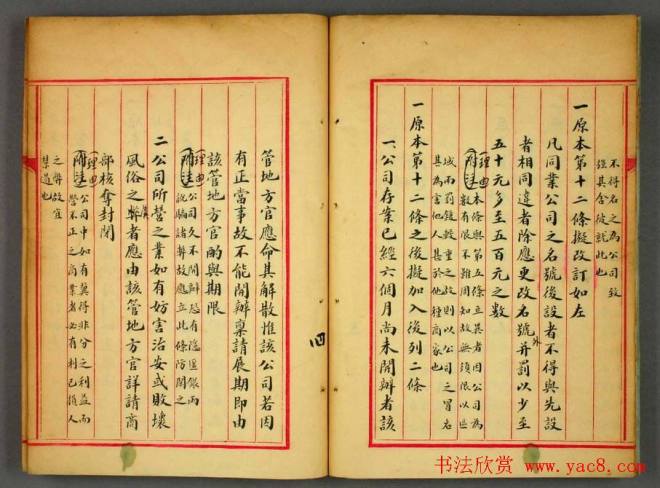 不得名之為公司致
經其含後就此也
一原本第十二條擬改訂如左
凡同業公司之名號後設者不得與先設
者相同違者除應更改名號外並罰以少至
五十元多至五百元之數
理由
附註
本條與第五條立異者因公司為
數有限不難周知故無須限以些
城而罰鍰較重之故則以公司之冒名
其為害他人甚於他種商家也
一原本第十二條之後擬加入後列二條
一公司存案已經六個月尚未開辦者該
管地方官應命其解散惟該公司若因
有正當事故不能開辦稟請展期即由
該管地方官酌與期限
理由
附註
公司久不開辦恐有隱匿銀兩
諸弊故應立此條防閑之
二公司所營之業如有妨害治安或敗壞
風俗之弊者應由該管地方官詳請商
部核奪封閉
理由
附註
公司中如有冀得非分之利益而
營不正之商業者必有利己損人
之弊故宜
禁遏也
四
书法欣赏
www.yac8.com